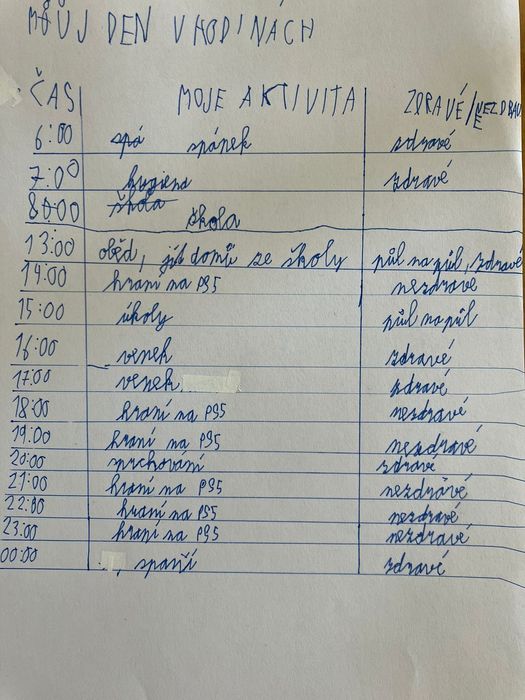 MŮJ DEN V HODINÁCH
ČAS MOJE AKTIVITA ZDRAVÉ/NEZDRAVÉ
6:00 spá spánek zdravé
7:00 hygiena zdravé
8:00 škola škola
13:00 oběd, jít domů ze školy půl na půl, zdravé
14:00 hraní na PS5 nezdravé
15:00 úkoly půl na půl
16:00 venek zdravé
17:00 venek zdravé
18:00 hraní na PS5 nezdravé
19:00 hraní na PS5 nezdravé
20:00 sprchování zdravé
21:00 hraní na PS5 nezdrávé
22:00 hraní na PS5 nezdravé
23:00 hraní na PS5 nezdravé
00:00 , spaní zdravé